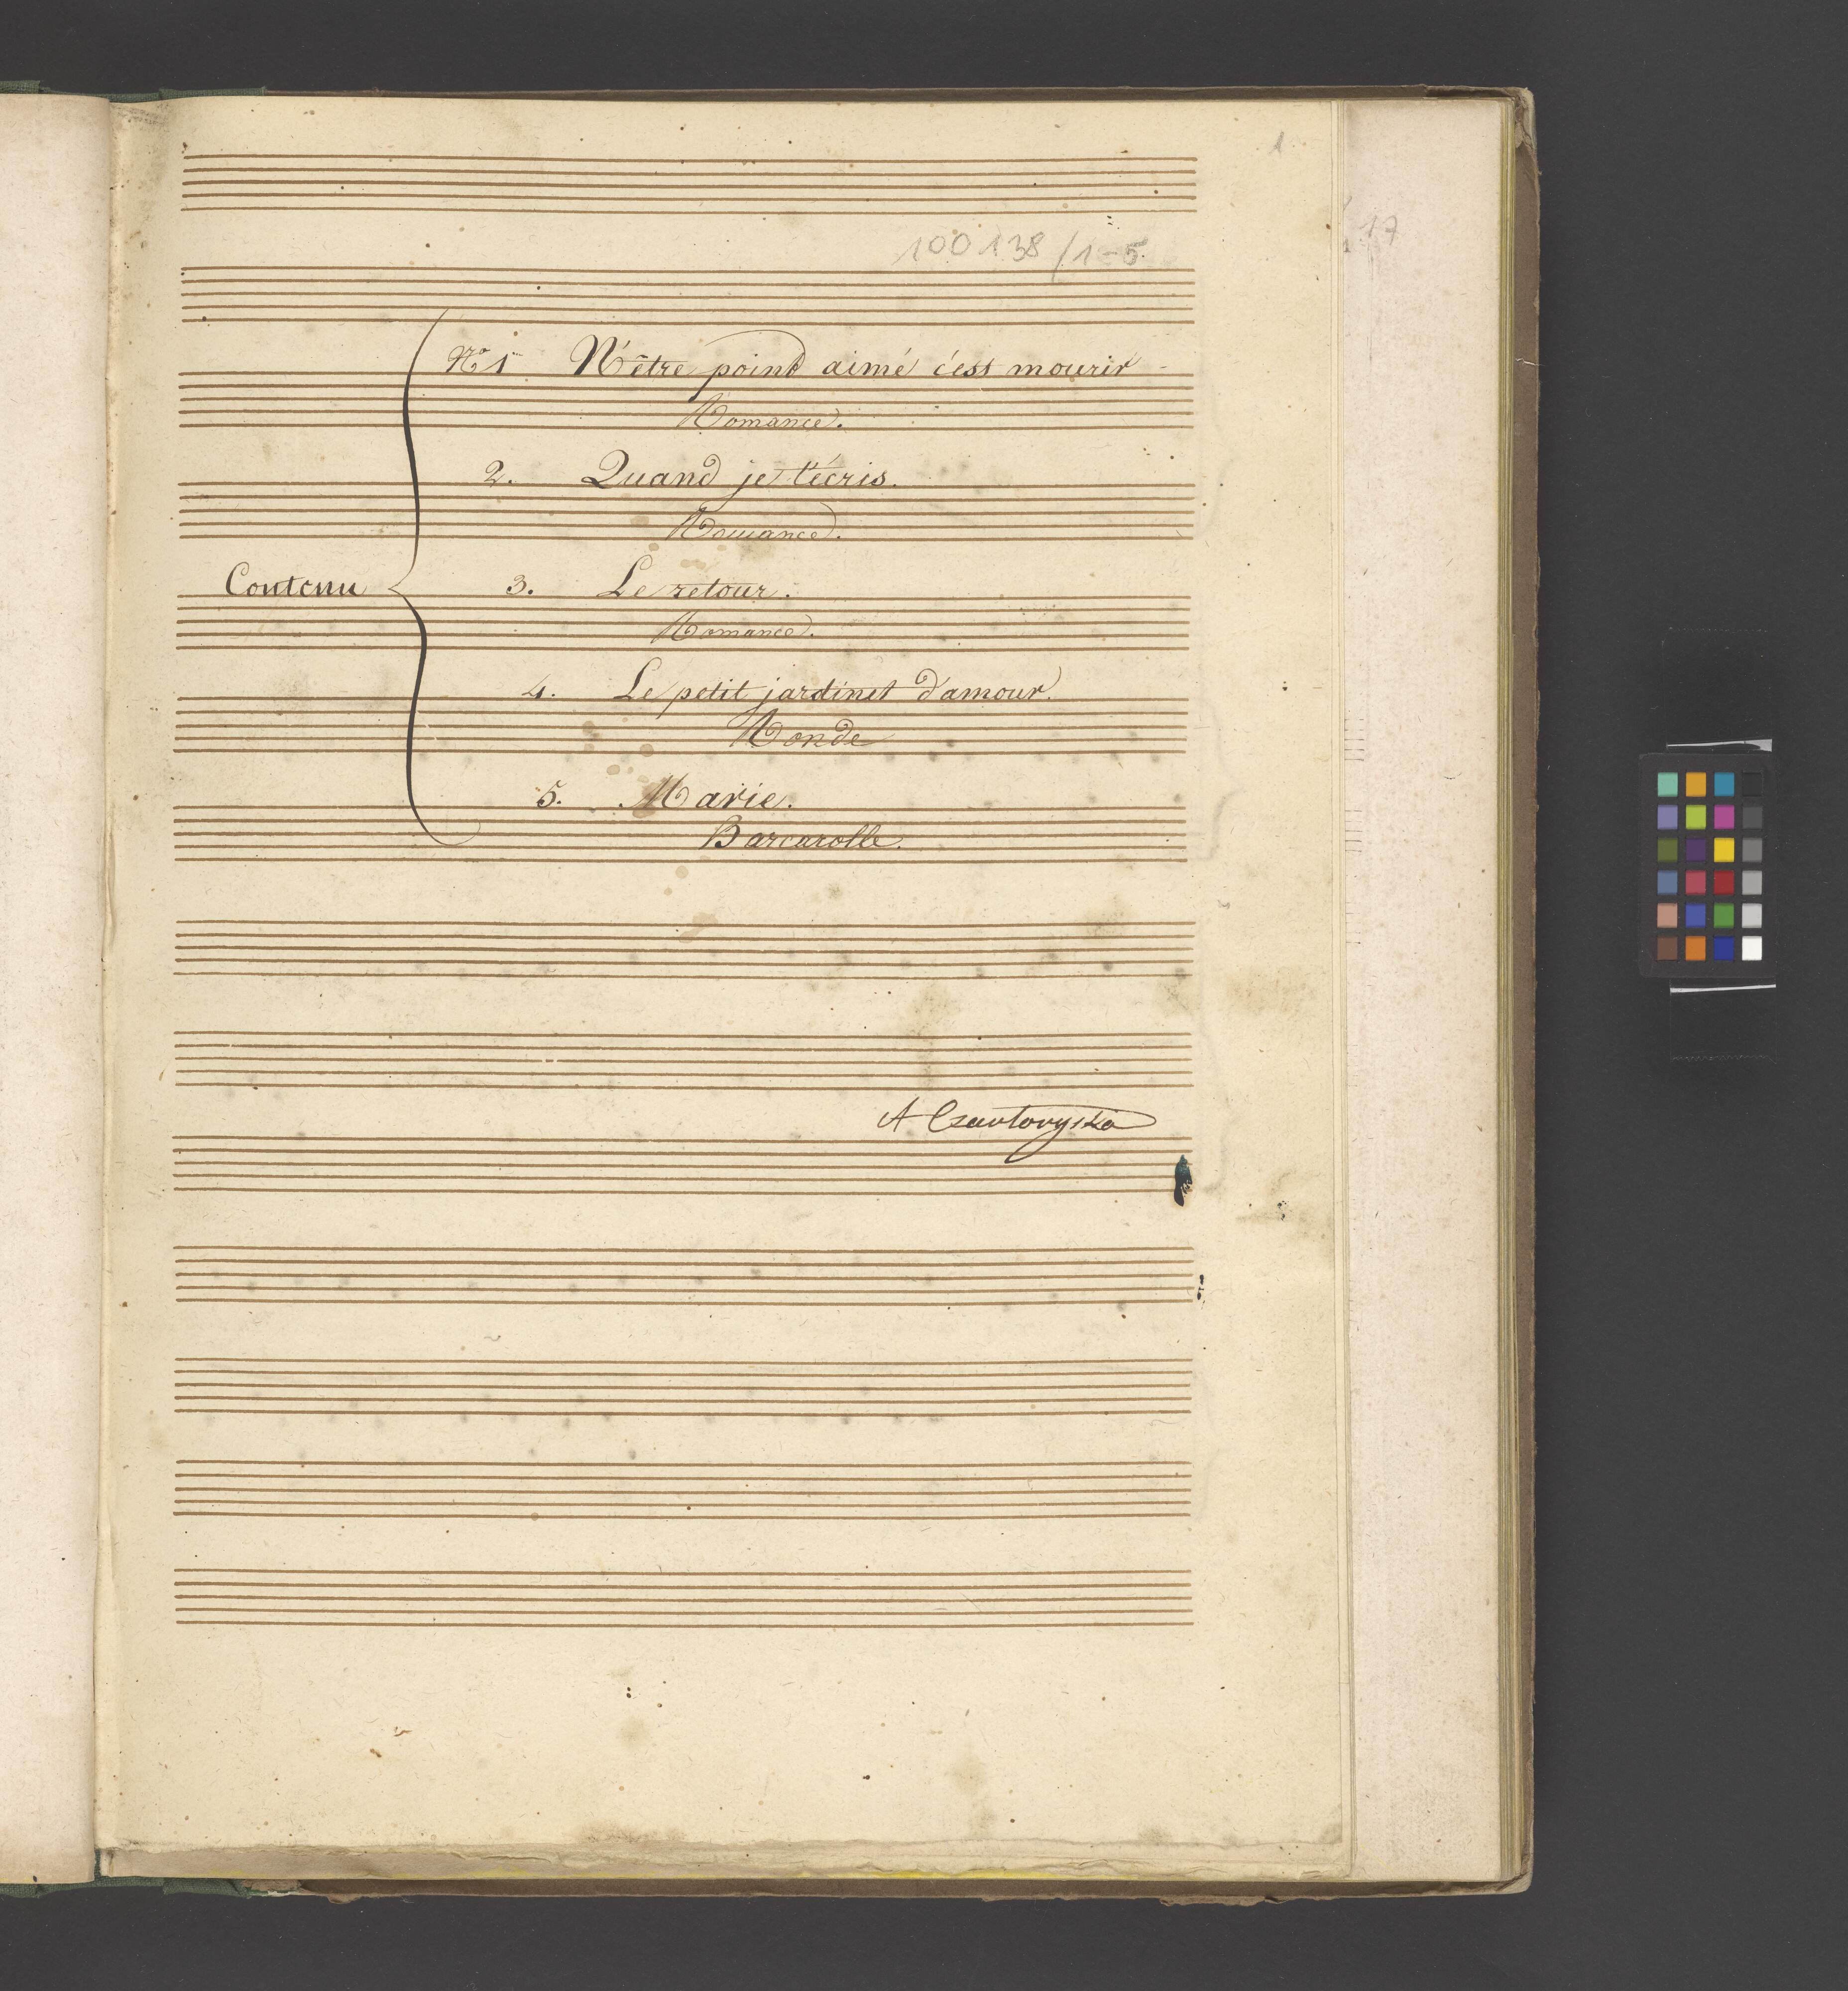 1
17
100138/1-5.
Nro 1 N'être point aimé c'est mourir
Romance.
2. Quand je t'écris.
Romance.
Contenu 3. Le retour.
Romance.
4. Le petit jardinet d'amour.
Ronde
5. Marie.
Barcarolle.
A Czartoryska